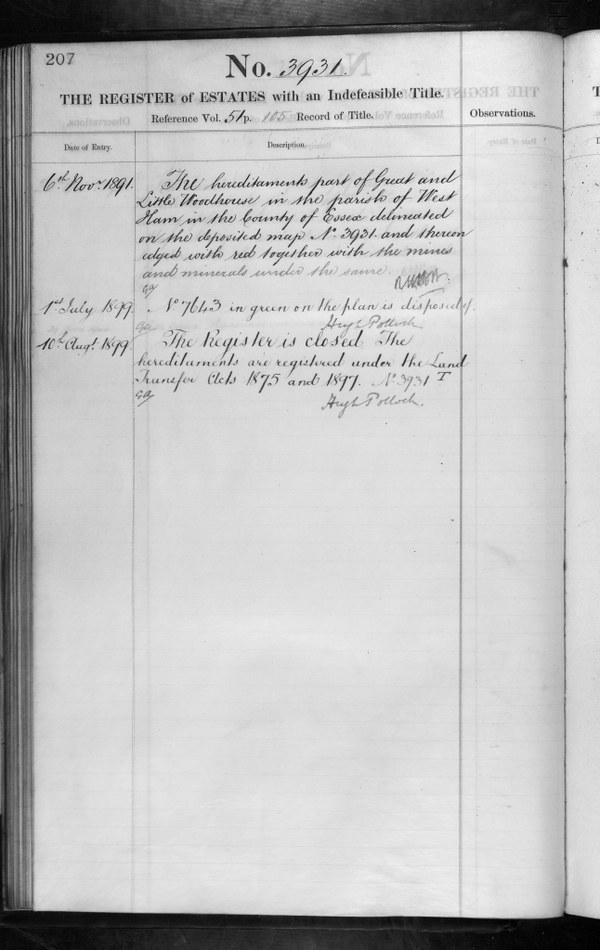 207
No. 3931.
THE REGISTER of ESTATES with an Indefeasible Title.
Reference Vol. 51 p. 105 Record of Title.
Observations.
Date of Entry.
Description.
6th Novr. 1891.
The hereditaments part of Great and
Little Woodhouse in the parish of West
Ham in the County of Essex delineated
on the deposited map No. 3931. and thereon
edged with red together with the mines
and minerals under the same.
1st July 1899.
No 7643 in green on the plan is disposed of.
Hugh Pollock
10th Augt. 1899
The Register is closed The
hereditaments are registered under the Land
Transfer Acts 1875 and 1897. No. 3931 T
Hugh Pollock.